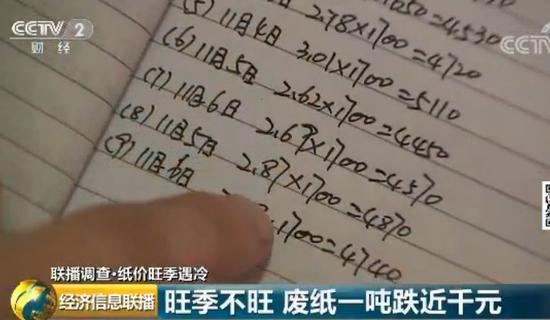 CCTV 2
财经
2.78×1700=4530
(5) 11月4日 3.01×1700=4720
(6) 11月5日 2.62×1700=5110
(7) 11月6日 2.69×1700=4450
(8) 11月5日 2.87×1700=4570
(9) 11月6日 1700=4870
=4740
联播调查·纸价旺季遇冷
经济信息联播
旺季不旺 废纸一吨跌近千元